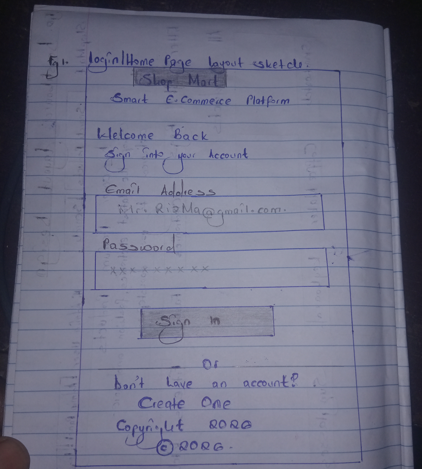 Fig 1. Login/Home Page Layout sketch.
Shop Mart
Smart E-Commerce Platform
Welcome Back
Sign into your Account
Email Address
RizMa@gmail.com.
Password
x x x x x x x x x
Sign in
Or
Don't have an account?
Create One
Copyright 2026
© 2026.